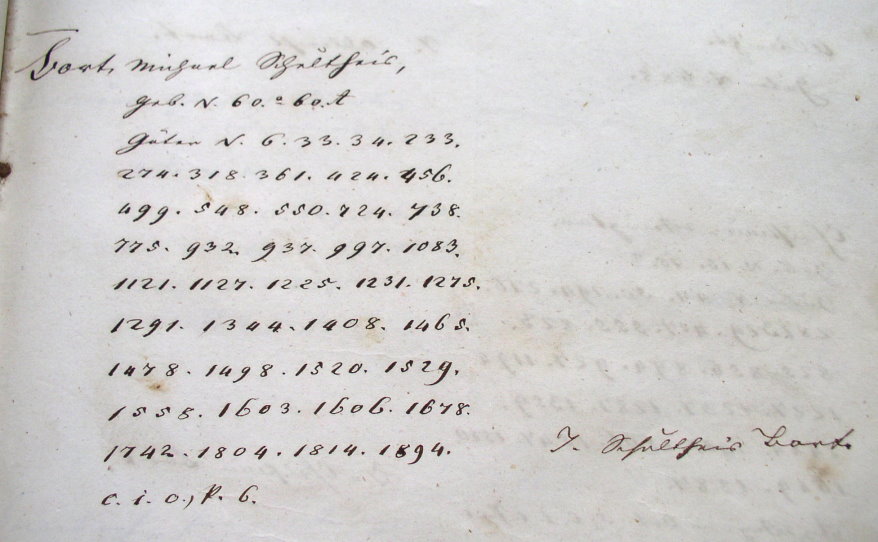 Bart, Michael Schultheis,
geb. N. 60.a 60. A
Güter N. 6. 33. 34. 233.
274. 318. 361. 424. 456.
499. 548. 550. 724. 738.
775. 932. 937. 997. 1083.
1121. 1127. 1225. 1231. 1275.
1291. 1344. 1408. 1465.
1478. 1498. 1520. 1529.
1558. 1603. 1606. 1678.
1742. 1804. 1814. 1894.
T. Schultheis Bart.
c. i. o., p. 6.